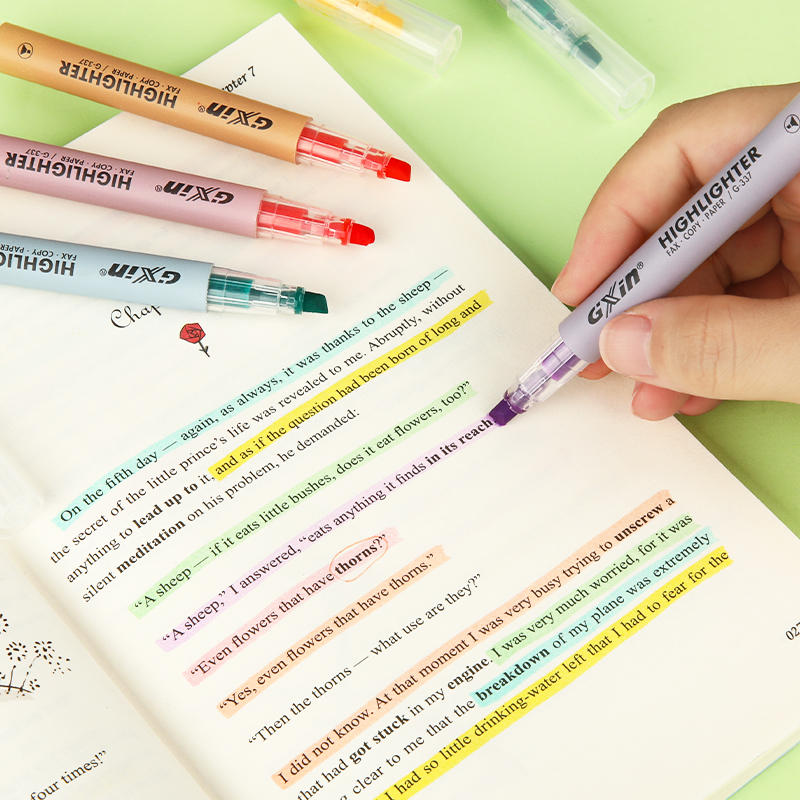 Chapter 7
HIGHLIGHTER
FAX · COPY · PAPER / G-337
GXin®
HIGHLIGHTER
FAX · COPY · PAPER / G-337
GXin®
HIGHLIGHTER
FAX · COPY · PAPER
GXin®
HIGHLIGHTER
FAX · COPY · PAPER / G-337
GXin®
Chap
On the fifth day — again, as always, it was thanks to the sheep —
the secret of the little prince's life was revealed to me. Abruptly, without
anything to lead up to it, and as if the question had been born of long and
silent meditation on his problem, he demanded:
“A sheep — if it eats little bushes, does it eat flowers, too?”
“A sheep,” I answered, “eats anything it finds in its reach
“Even flowers that have thorns?”
“Yes, even flowers that have thorns.”
“Then the thorns — what use are they?”
I did not know. At that moment I was very busy trying to unscrew a
that had got stuck in my engine. I was very much worried, for it was
clear to me that the breakdown of my plane was extremely
I had so little drinking-water left that I had to fear for the
four times!”